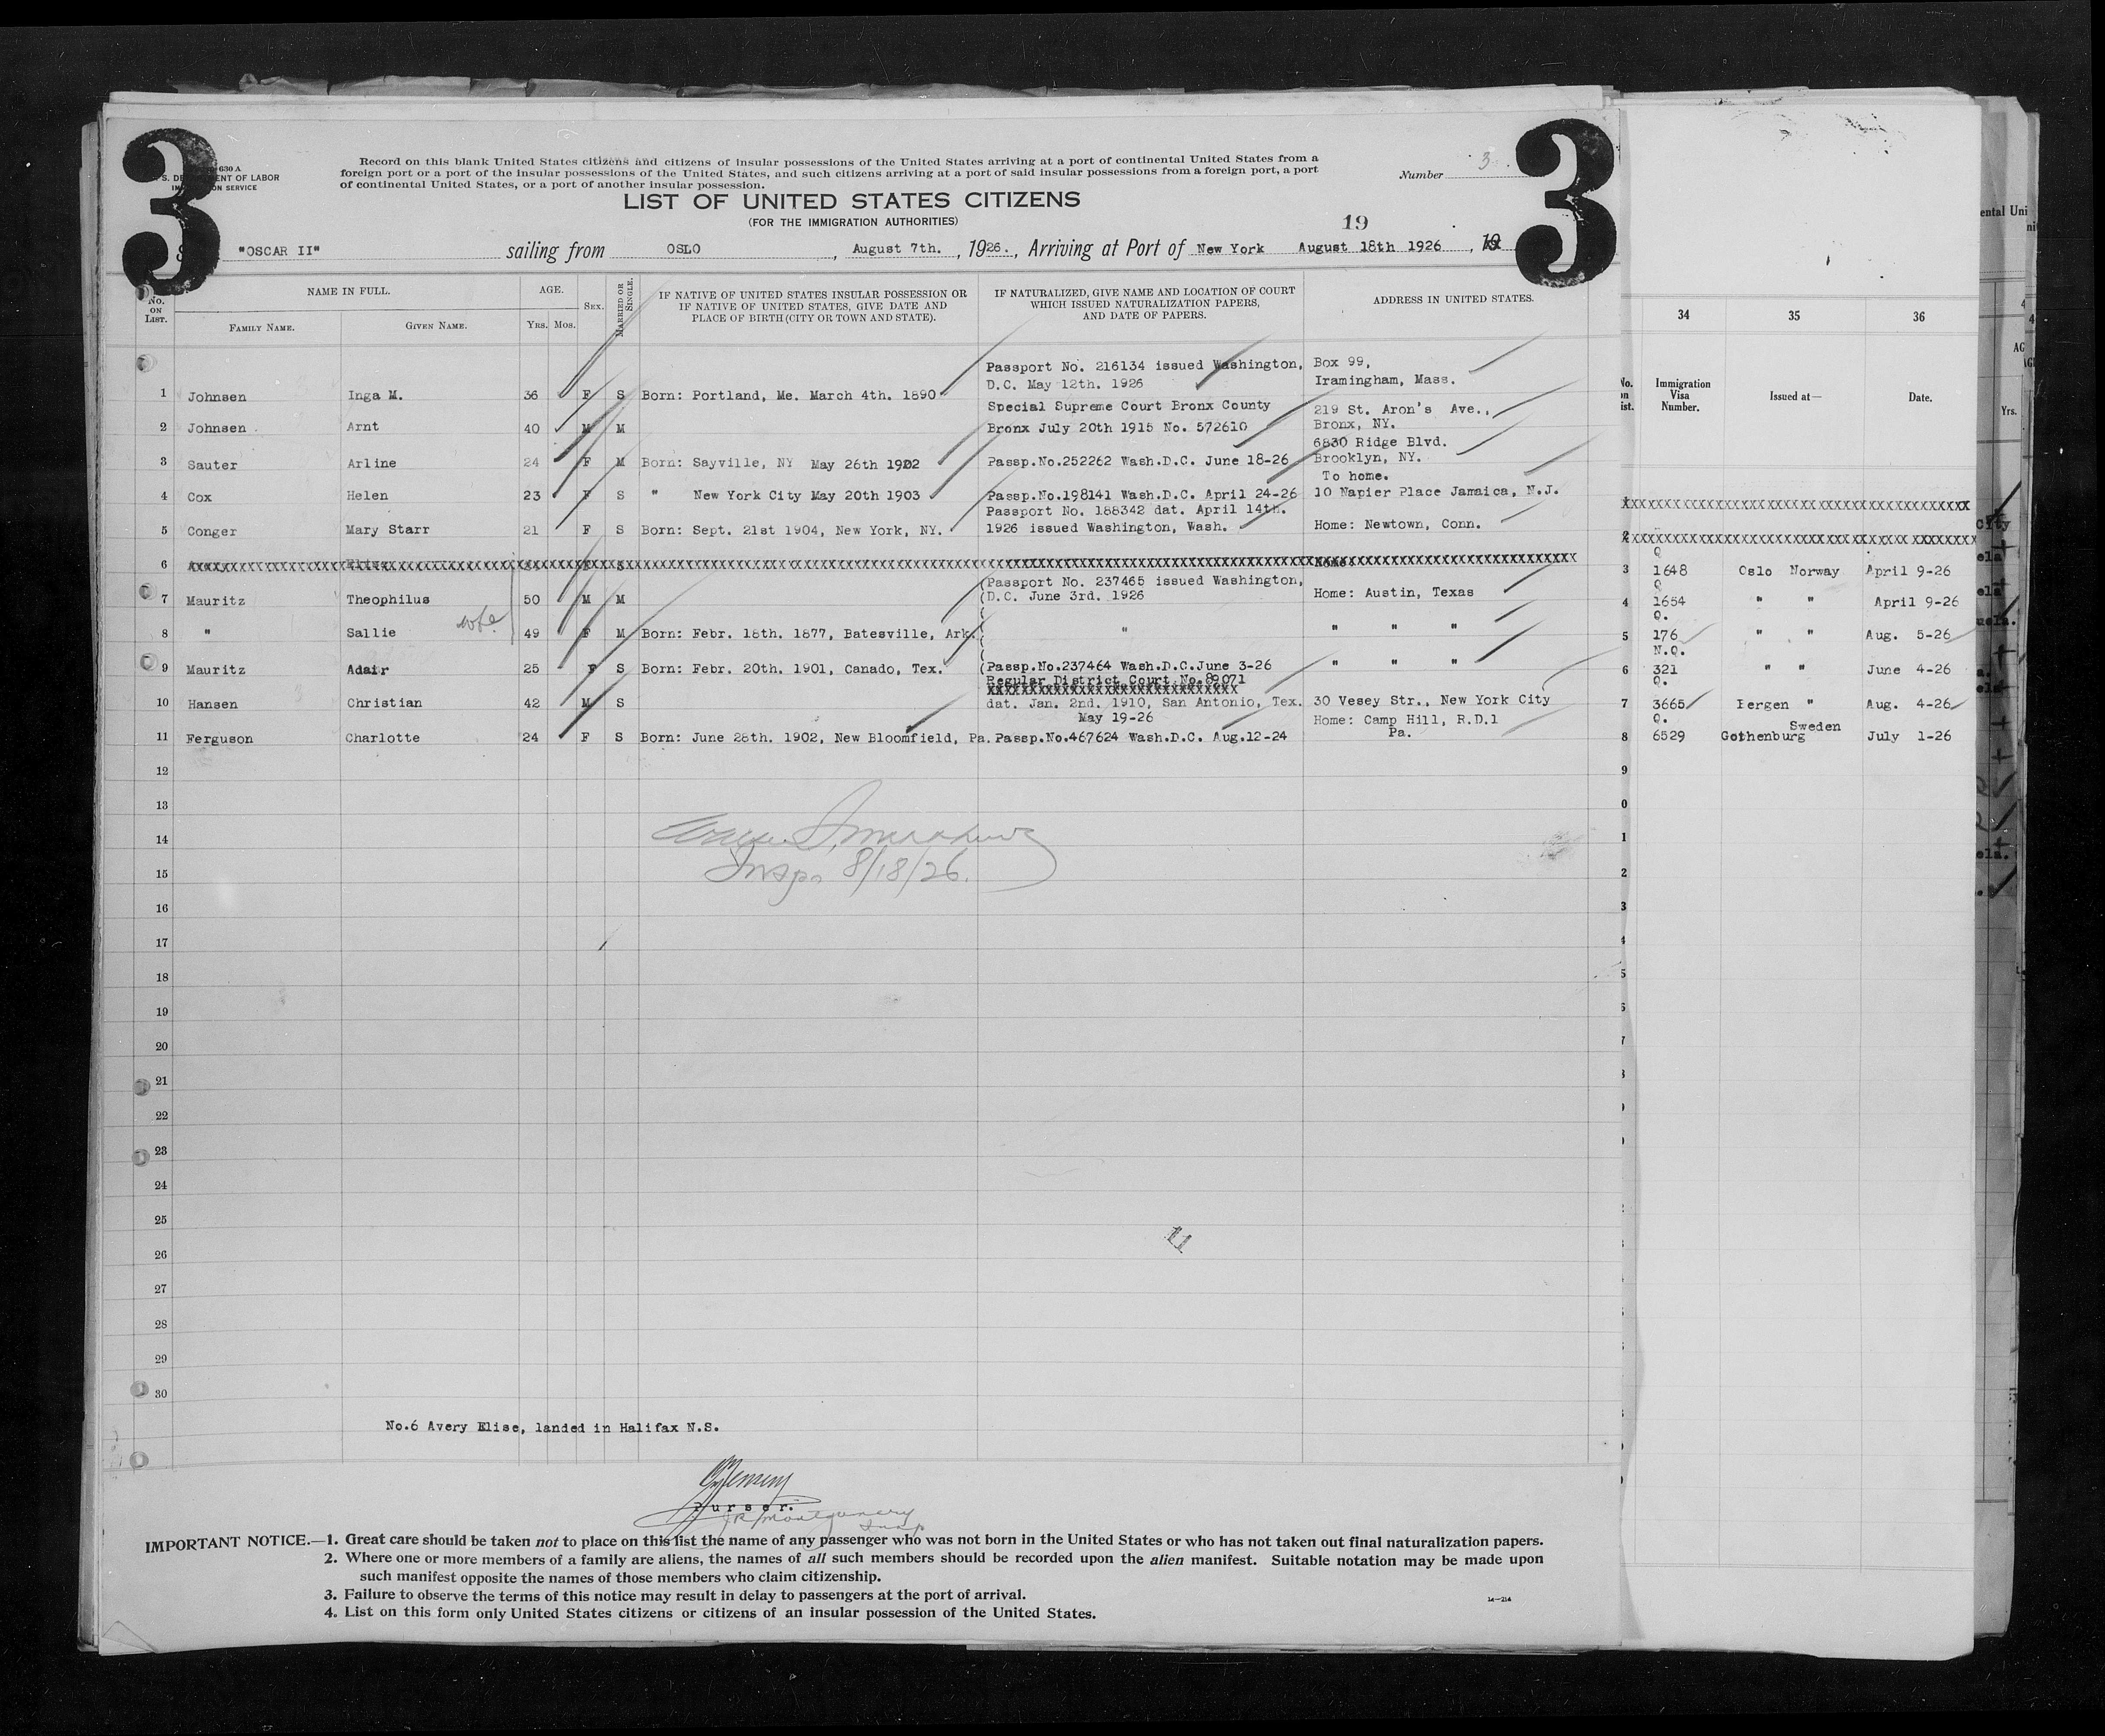 3
3
630 A
DEPARTMENT OF LABOR
IMMIGRATION SERVICE
Record on this blank United States citizens and citizens of insular possessions of the United States arriving at a port of continental United States from a
foreign port or a port of the insular possessions of the United States, and such citizens arriving at a port of said insular possessions from a foreign port, a port
of continental United States, or a port of another insular possession.
Number 3
LIST OF UNITED STATES CITIZENS
(FOR THE IMMIGRATION AUTHORITIES)
19
"OSCAR II" sailing from OSLO, August 7th., 1926., Arriving at Port of New York August 18th 1926, 19
No. ON LIST.
NAME IN FULL.
FAMILY NAME. GIVEN NAME.
AGE.
YRS. MOS.
SEX.
MARRIED OR SINGLE.
IF NATIVE OF UNITED STATES INSULAR POSSESSION OR
IF NATIVE OF UNITED STATES, GIVE DATE AND
PLACE OF BIRTH (CITY OR TOWN AND STATE).
IF NATURALIZED, GIVE NAME AND LOCATION OF COURT
WHICH ISSUED NATURALIZATION PAPERS,
AND DATE OF PAPERS.
ADDRESS IN UNITED STATES.
Passport No. 216134 issued Washington, Box 99,
D.C. May 12th. 1926 Iramingham, Mass.
1 Johnsen Inga M. 36 F S Born: Portland, Me. March 4th. 1890
Special Supreme Court Bronx County 219 St. Aron's Ave.,
2 Johnsen Arnt 40 M M Bronx July 20th 1915 No. 572610 Bronx, NY.
6830 Ridge Blvd.
3 Sauter Arline 24 F M Born: Sayville, NY May 26th 1902 Passp.No.252262 Wash.D.C. June 18-26 Brooklyn, NY.
To home.
4 Cox Helen 23 F S " New York City May 20th 1903 Passp.No.198141 Wash.D.C. April 24-26 10 Napier Place Jamaica, N.J.
Passport No. 188342 dat. April 14th.
5 Conger Mary Starr 21 F S Born: Sept. 21st 1904, New York, NY. 1926 issued Washington, Wash. Home: Newtown, Conn.
6
(Passport No. 237465 issued Washington,
7 Mauritz Theophilus 50 M M (D.C. June 3rd. 1926 Home: Austin, Texas
8 " Sallie wife 49 F M Born: Febr. 18th. 1877, Batesville, Ark. ( " " " "
9 Mauritz Adair 25 F S Born: Febr. 20th. 1901, Canado, Tex. (Passp.No.237464 Wash.D.C.June 3-26 " " "
Regular District Court No.89071
10 Hansen Christian 42 M S dat. Jan. 2nd. 1910, San Antonio, Tex. 30 Vesey Str., New York City
May 19-26 Home: Camp Hill, R.D.1
11 Ferguson Charlotte 24 F S Born: June 28th. 1902, New Bloomfield, Pa. Passp.No.467624 Wash.D.C. Aug.12-24 Pa.
12
13
14
15
Insp. 8/18/26.
16
17
18
19
20
21
22
23
24
25
11
26
27
28
29
30
No.6 Avery Elise, landed in Halifax N.S.
Purser.
JR Montgomery
Insp
IMPORTANT NOTICE.—1. Great care should be taken not to place on this list the name of any passenger who was not born in the United States or who has not taken out final naturalization papers.
2. Where one or more members of a family are aliens, the names of all such members should be recorded upon the alien manifest. Suitable notation may be made upon
such manifest opposite the names of those members who claim citizenship.
3. Failure to observe the terms of this notice may result in delay to passengers at the port of arrival.
4. List on this form only United States citizens or citizens of an insular possession of the United States.
14—214
34 35 36
Immigration
Visa
Number.
Issued at—
Date.
XXXXXXXXXXXXXXXXXXXXXXXXXXXXXXXXXXXXXXXX
XXXXXXXXXXXXXXXXXXXXXXXXXXXXXXXXXXXXXXXX
Q
3 1648 Oslo Norway April 9-26
Q
4 1654 " " April 9-26
Q.
5 176 " " Aug. 5-26
N.Q.
6 321 " " June 4-26
Q.
7 3665 Bergen " Aug. 4-26
Q. Sweden
8 6529 Gothenburg July 1-26
9
0
1
2
3
ental Uni
Yrs.
City